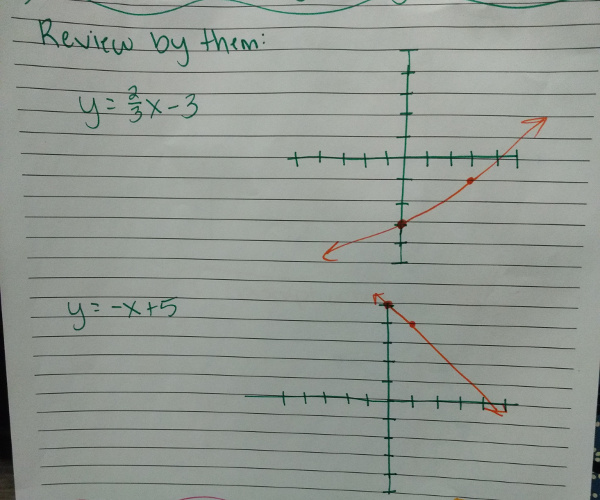 Review by them:
y = 2/3x - 3
y = -x + 5